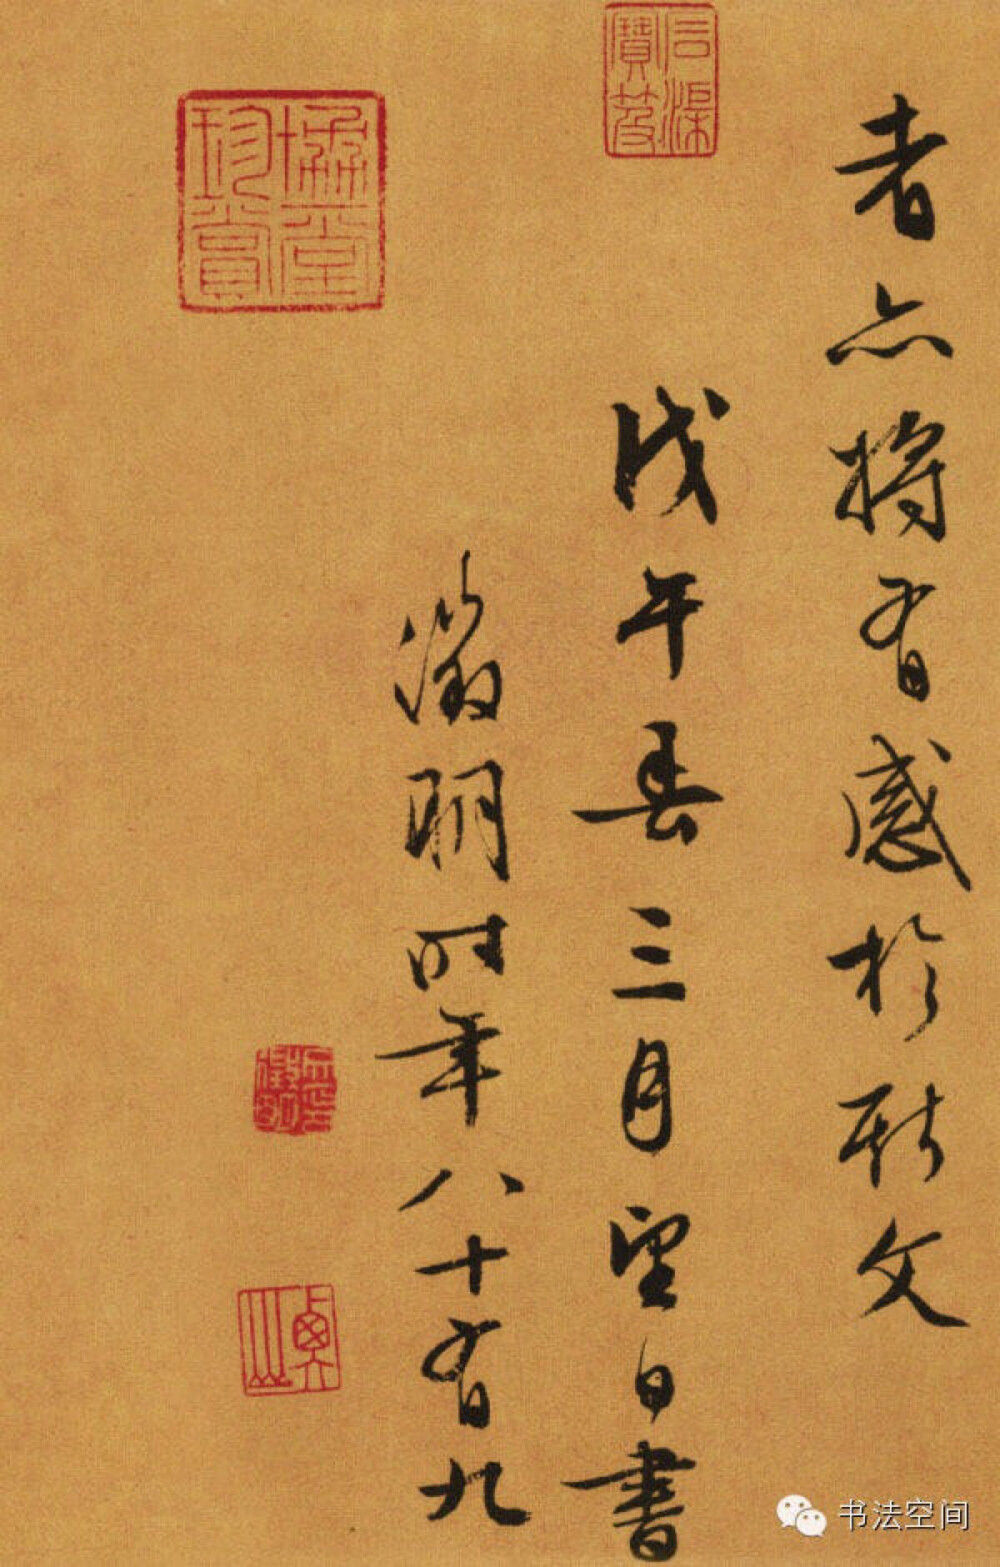 者亦將有感於斯文
戊午春三月望日書
徵明時年八十有九
石渠寶笈
书法空间